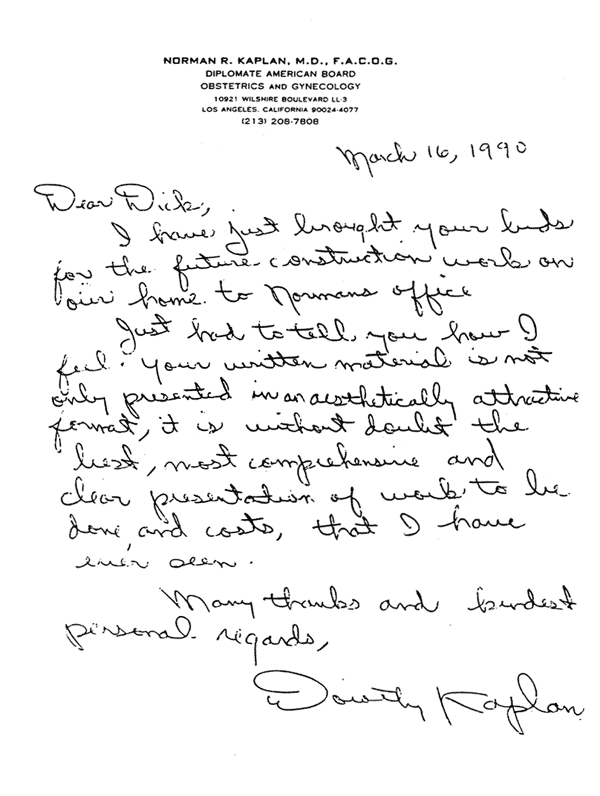 NORMAN R. KAPLAN, M.D., F.A.C.O.G.
DIPLOMATE AMERICAN BOARD
OBSTETRICS AND GYNECOLOGY
10921 WILSHIRE BOULEVARD LL-3
LOS ANGELES, CALIFORNIA 90024-4077
(213) 208-7808
March 16, 1990
Dear Dick,
I have just brought your bids
for the future construction work on
our home to Normans office
Just had to tell you how I
feel. Your written material is not
only presented in an aesthetically attractive
format, it is without doubt the
best, most comprehensive and
clear presentation of work to be
done, and costs, that I have
ever seen.
Many thanks and kindest
personal regards,
Dorothy Kaplan